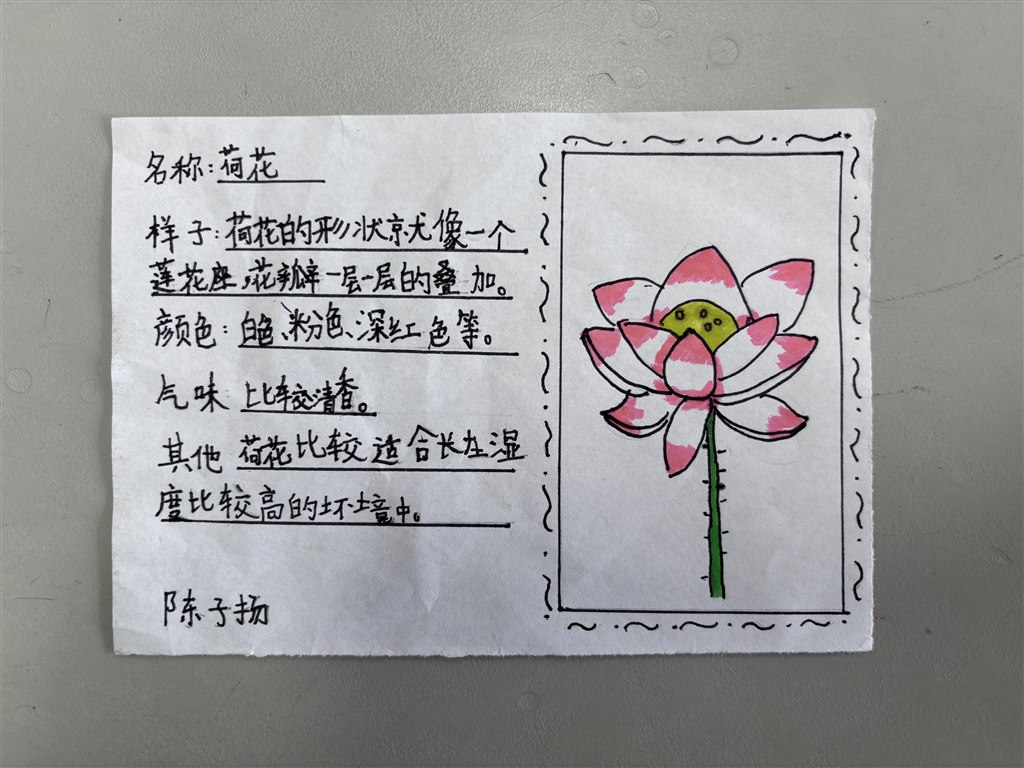 名称:荷花
样子:荷花的形状就像一个
莲花座,花瓣一层一层的叠加。
颜色:白色、粉色、深红色等。
气味 比较清香。
其他 荷花比较适合长在湿
度比较高的坏境中。
陈子扬